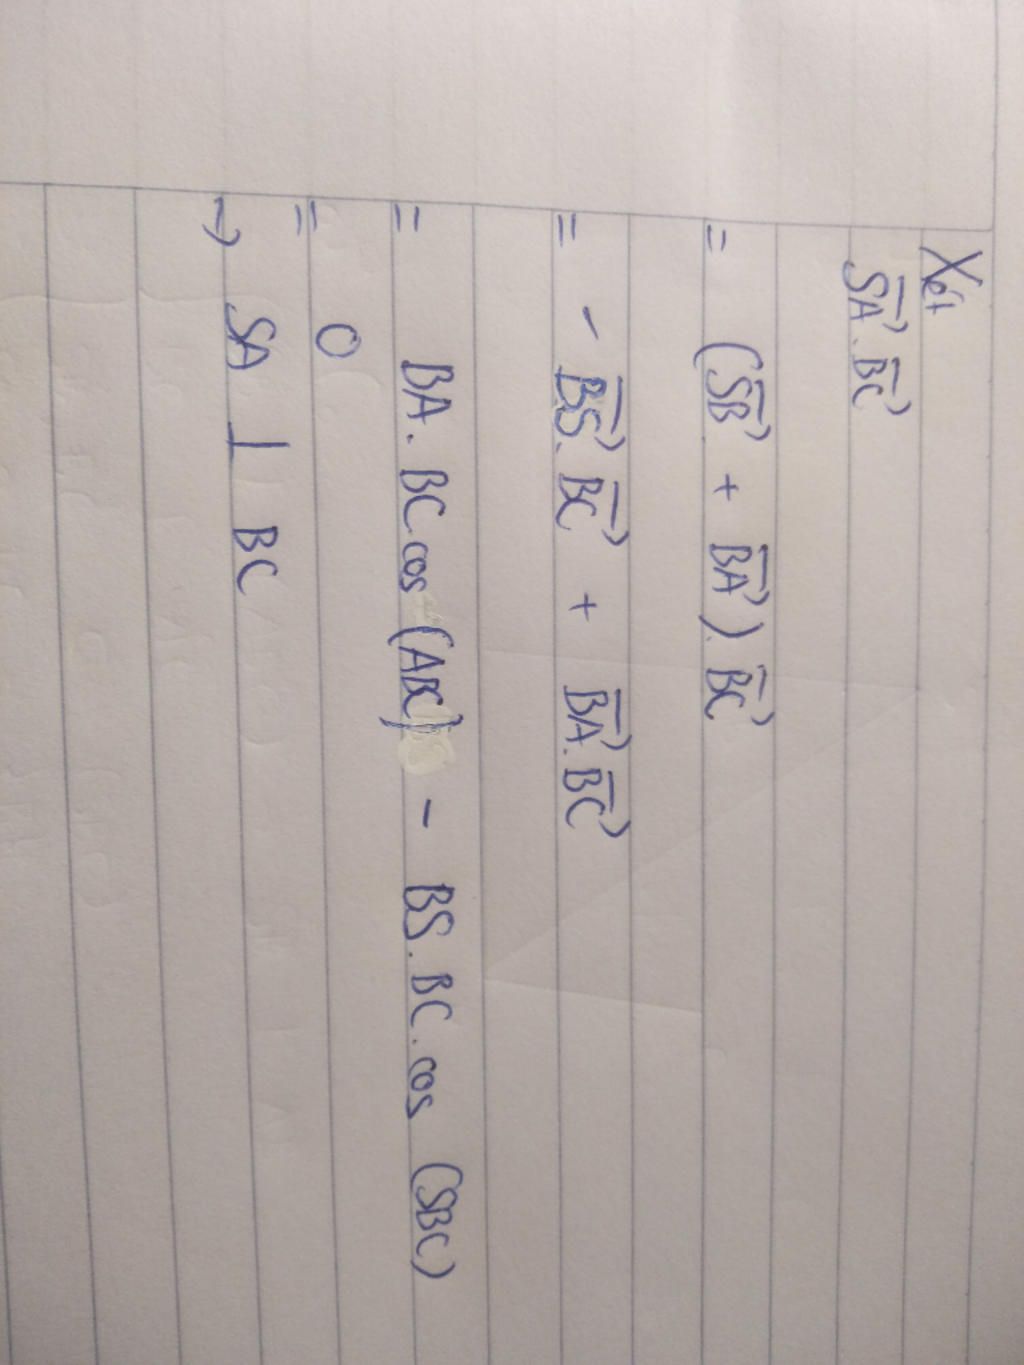 Xét
$\overrightarrow{SA}.\overrightarrow{BC}$
= $(\overrightarrow{SB} + \overrightarrow{BA}).\overrightarrow{BC}$
= $-\overrightarrow{BS}.\overrightarrow{BC} + \overrightarrow{BA}.\overrightarrow{BC}$
= BA. BC.cos (ABC) - BS. BC. cos (SBC)
= 0
→ SA ⊥ BC